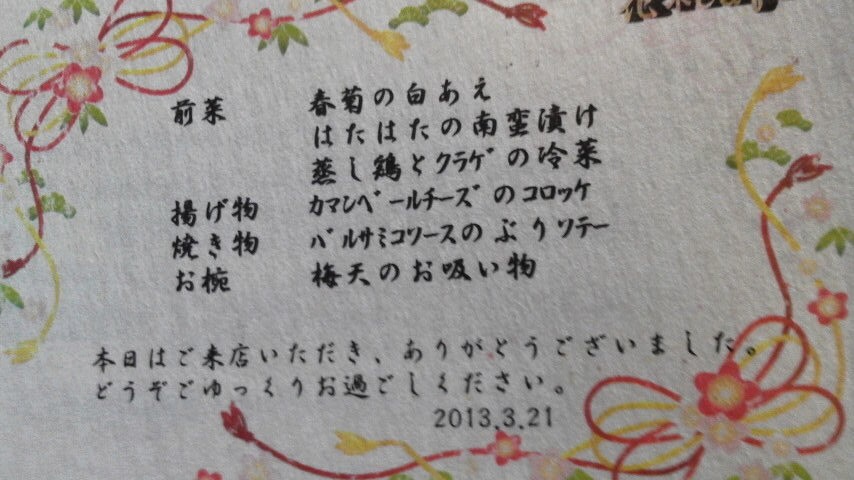 前菜 春菊の白あえ
はたはたの南蛮漬け
蒸し鶏とクラゲの冷菜
揚げ物 カマンベールチーズのコロッケ
焼き物 バルサミコソースのぶりソテー
お椀 梅天のお吸い物
本日はご来店いただき、ありがとうございました。
どうぞごゆっくりお過ごしください。
2013.3.21